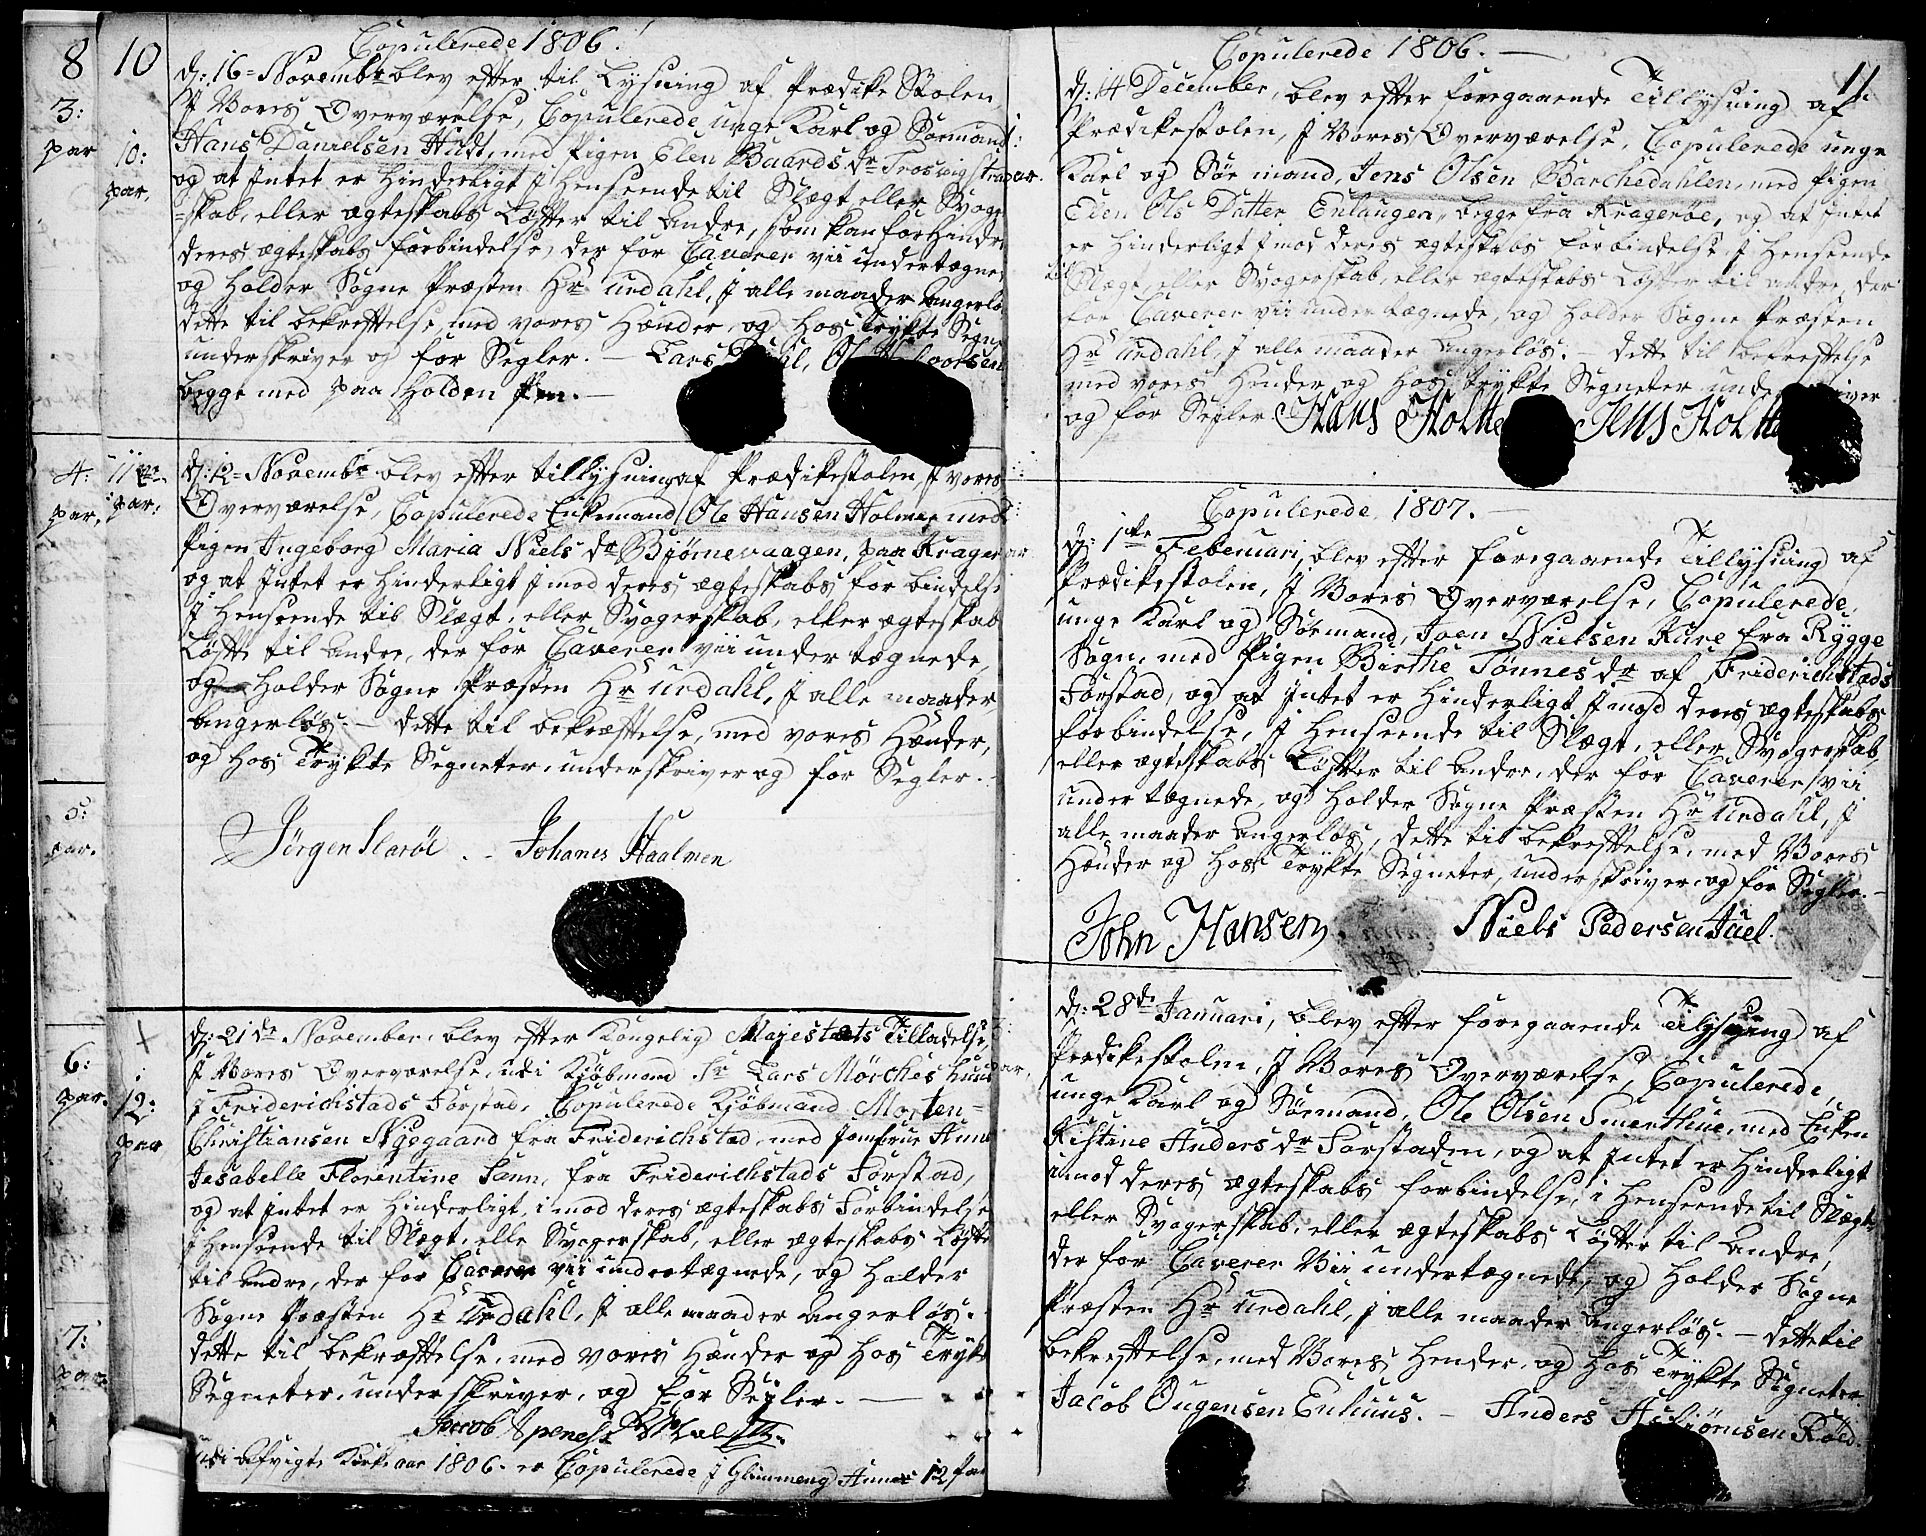 8
3:
par
4:
par.
5:
par.
6:
par.
7:
par.
10
Copulerede 1806.
10:
par.
d: 16= Novembr blev efter til Lysning af Prædike Stolen,
J Vores Overværelse, Copulerede unge Karl og Sørmand
Hans Danielsen Hudt, med Pigen Elen Baards dr Trosvigstran
og at Jntet er Hinderligt J Henseende til Slægt eller Svoger
=skab, eller ægteskabs Løfter til Andre, som kan forHindre
deres ægteskabs forbindelse, der for Caverer vii undertægne
og Holder Sogne Præsten Hr Urdahl, J alle maader Angerlø
dette til bekreftelse, med vores Hænder, og Hos Trykte Segne
underskriver og for Segler. — Lars
begge med paa Holden Pen. —
11te
par:
d: 12= Novembr blev efter tillysning af Prædikestolen J vores
Overværelse, Copulerede Enkemand Ole Hansen Holmen med
Pigen Ingeborg Maria Niels dr Bjørnevaagen, paa Krager
og at Jntet er Hinderligt J mod deres ægteskabs for bindelse
J Henseende til Slægt, eller Svogerskab, eller ægteskab
Løfte til Andre, der for Caverer vii under tægnede,
og Holder Sogne Præsten Hr Urdahl, J alle maader,
Angerløs. — dette til bekræftelse, med vores Hænder,
og Hos Trykte Segneter, underskriver og for Segler. —
Jörgen Slaröe .. Johanes Haalmen
12:
par
d: 21de November, blev efter Kongelig Majestæts Tilladelse,
J Vores Overværelse, udi Kjøbmand Sr Lars Mørches Huus
J Friderichstads Forstad, Copulerede Kjøbmand Morten=
Christiansen Nygaard fra Friderichstad, med Jomfrue Anne
Jesabelle Florentine Sann, fra Friderichstads Forstad,
og at Jntet er Hinderligt, i mod deres ægteskabs Forbindelse
J Henseende til Slægt, elle Svogerskab, eller ægteskabs Løfte
til Andre, der for Caverer vii undertægnede, og Holder
Sogne Præsten Hr Urdahl, J alle maader Angerløs.
dette til bekræftelse, med vores Hænder og Hos Trykt
Segneter, underskriver, og for Segler. —
Jacob
udi Afvigte Kirke aar 1806. er Copulerede J Glimmeng Annex 12 Par
11.
Copulerede 1806. —
d: 14 December, blev efter foregaaende Tillysning af
Prædikestolen, J Vores Overværelse, Copulerede unge
Karl og Sør mand, Jens Olsen Barchedahlen, med Pigen
Elen Ols Datter Enhaugen, begge fra Kragerøe, og at Jntet
er Hinderligt J mod deres ægteskabs forbindelse J Henseende
til Slægt, eller Svogerskab, eller ægteskabs Løfter til andre, der
for Caverer vii undertægnede, og Holder Sogne Præsten
Hr Urdahl, J alle maader Angerløs. — dette til bekreftelse
med vores Hender, og Hos trykte Segneter underskriver
og for Segler Hans Holte Jens Holte
Copulerede 1807. —
d: 1ste Februari, blev efter foregaaende Tillysning af
Prædikestolen, J Vores Overværelse, Copulerede,
unge Karl og Sørmand, Joen Nielsen Kure fra Rygge
Sogn, med Pigen Birthe Tønnes dr af Friderichstads
Forstad, og at Jntet er Hinderligt J mod deres ægteskabs
forbindelse, J Henseende til Slægt, eller Svogerskab,
eller ægteskabs Løfter til Andre, der for Caverer vii
under tægnede, og Holder Sogne Præsten Hr Urdahl, J
alle maader Angerløs, dette til bekreftelse, med Vores
Hænder og Hos Trykte Segneter, underskriver og for Segler. —
John Hansen Niels Pedersen Juel.
d: 28de Januari, blev efter foregaaende Tilysning af
Prædikestolen, J Vores Overværelse, Copulerede,
unge Karl og Sørmand, Ole Olsen Smerthue, med Enken
Kistine Anders dr Forstaden, og at Jntet er Hinderligt
imod deres ægteskabs forbindelse, i Henseende til Slægt,
eller Svogerskab, eller ægteskabs Løfter til Andre,
der for Caverer Vii undertægnede, og Holder Sogne
Præsten Hr Urdahl, J alle maader Angerløs. — dette til
bekreftelse, med Vores Hender, og Hos Trykte Segneter
Jacob Ougensen Enhuus. — Anders Asbjørnsen Røed.